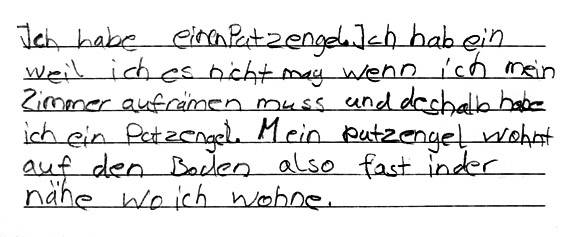 Ich habe einen Patzengel. Ich hab ein
weil ich es nicht mag wenn ich mein
Zimmer aufrämen muss und deshalb habe
ich ein Patzengel. Mein putzengel wohnt
auf den Boden also fast inder
nähe wo ich wohne.